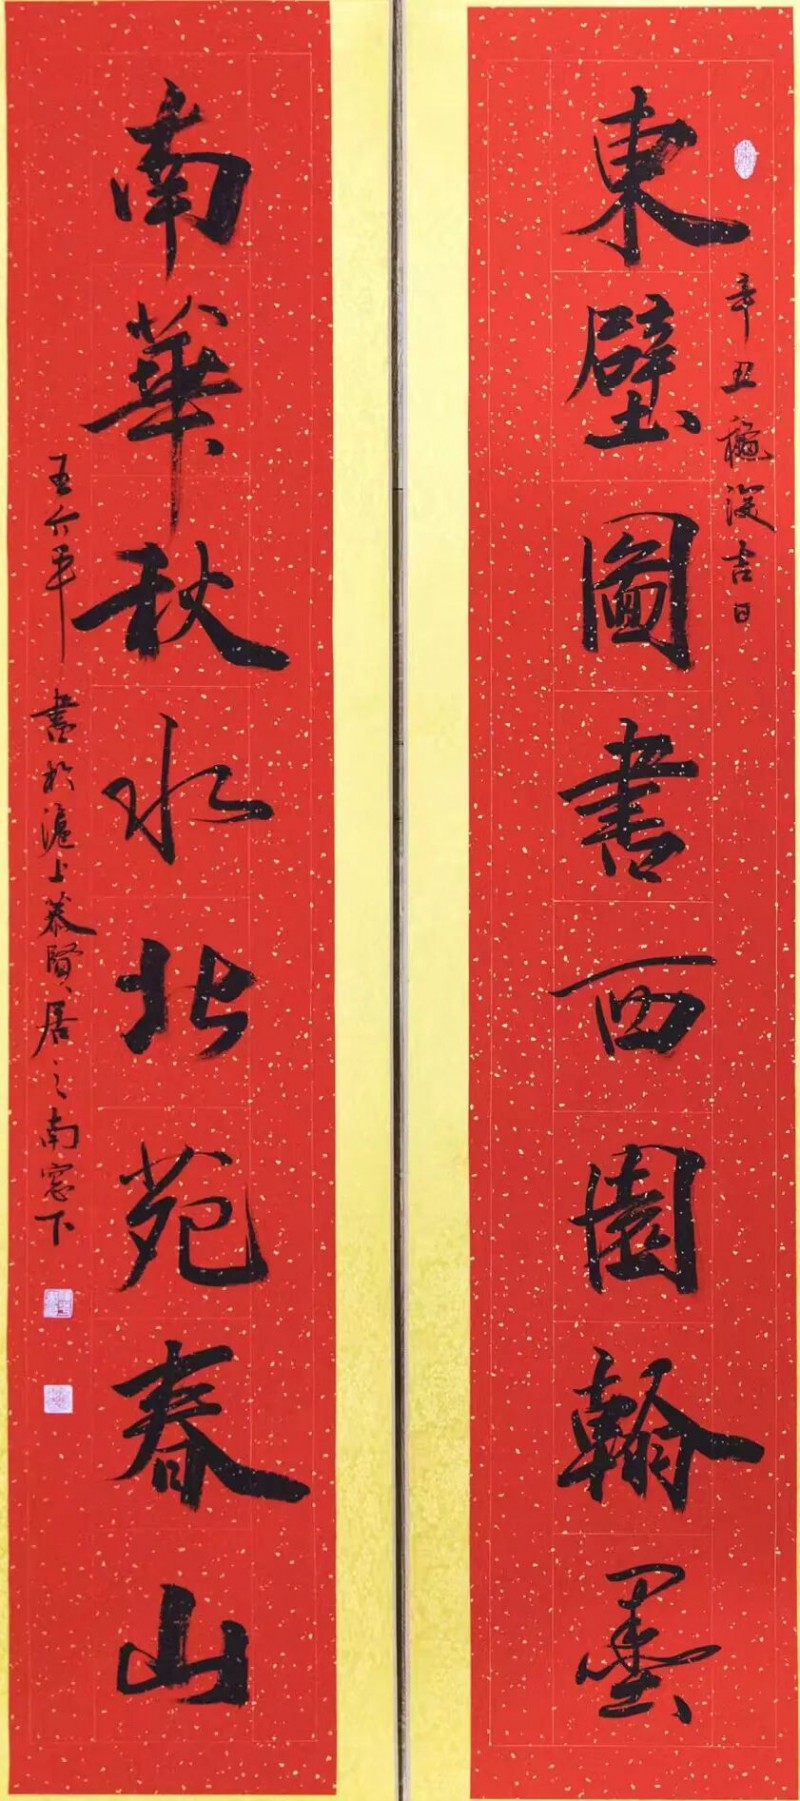 東壁圖書西園翰墨
辛丑穐深吉日
南華秋水北苑春山
王六平書於滬上慕賢居之南窓下